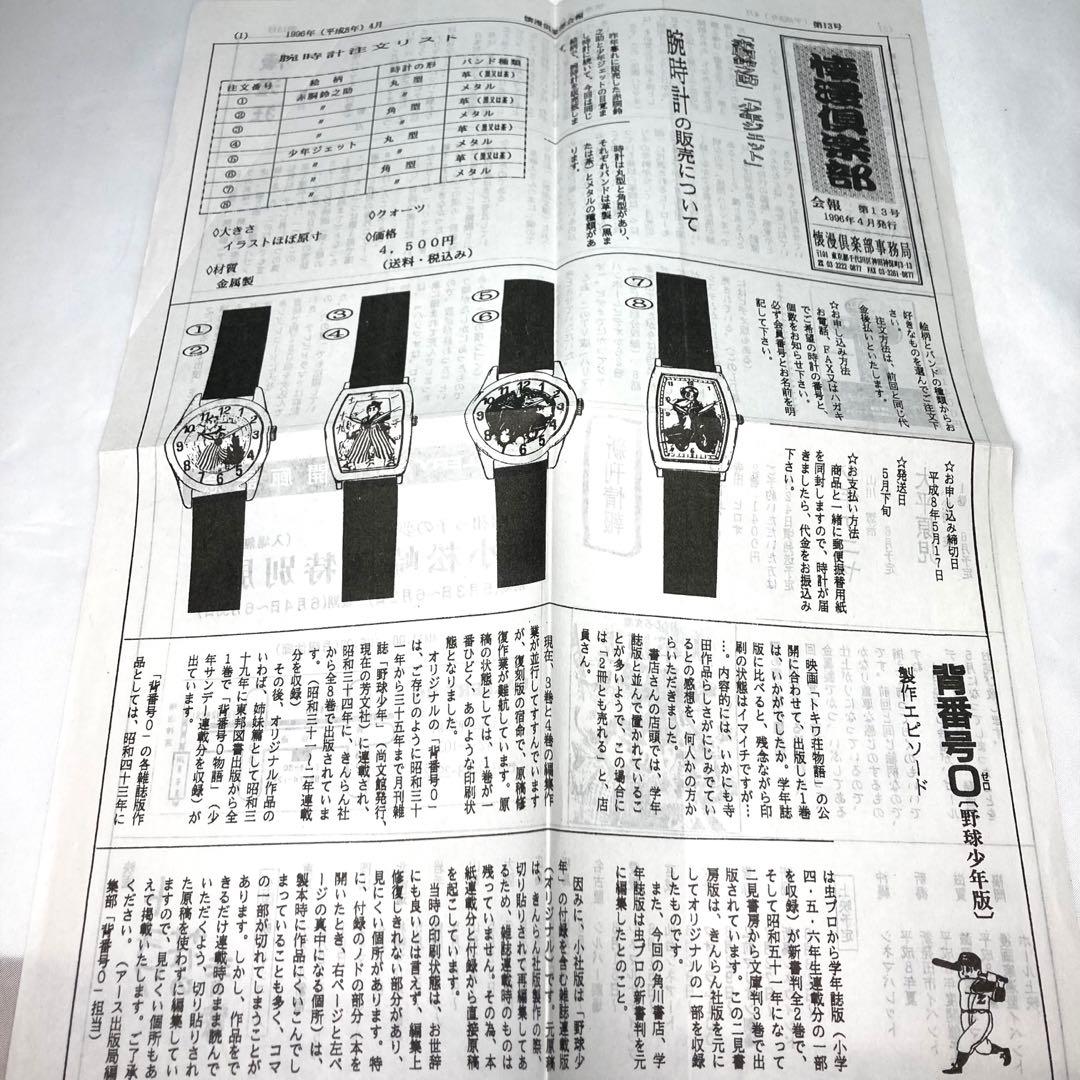 (1)
1996年(平成8年)4月
懐漫倶楽部会報
第13号
懐漫倶楽部
会報 第13号
1996年4月発行
懐漫倶楽部事務局
腕時計の販売について
昨年暮れに販売した赤胴鈴
之助と少年ジェットの目覚ま
時計は丸型と角型があり、
それぞれバンドは革製(黒ま
たは茶)とメタルの種類があ
ります。
腕時計注文リスト
注文番号 絵柄 時計の形 バンド種類
① 赤胴鈴之助 丸型 革(黒又は茶)
② 〃 〃 メタル
③ 〃 角型 革(黒又は茶)
④ 〃 〃 メタル
⑤ 少年ジェット 丸型 革(黒又は茶)
⑥ 〃 〃 メタル
⑦ 〃 角型 革(黒又は茶)
⑧ 〃 〃 メタル
◇大きさ
イラストほぼ原寸
◇材質
金属製
◇クォーツ
◇価格
4,500円
(送料・税込み)
①
②
③
④
⑤
⑥
⑦
⑧
絵柄とバンドの種類からお
好きなものを選んでご注文下
さい。
注文方法は、前回と同じ代
金後払いといたします。
☆お申し込み方法
お電話、FAX又はハガキ
でご希望の時計の番号と、
個数をお知らせ下さい。
必ず会員番号とお名前を明
記して下さい。
☆お申し込み締切日
平成8年5月17日
☆発送日
5月下旬
☆お支払い方法
商品と一緒に郵便振替用紙
を同封しますので、時計が届
きましたら、代金をお振込み
下さい。
背番号0
ゼロ
[野球少年版]
製作エピソード
映画「トキワ荘物語」の公
開に合わせて、出版した1巻
はいかがでしたか。学年誌
版に比べると、残念ながら印
刷の状態はイマイチですが…
…。内容的には、いかにも寺
田作品らしさがにじみでてい
るとの感想を、何人かの方か
らいただきました。
書店さんの店頭では、学年
誌版と並んで置かれているこ
とが多いようで、この場合に
は「2冊とも売れる」と、店
員さん。
現在、3巻と4巻の編集作
業が並行してすすんでいます
が、復刻版の宿命で、原稿修
復作業が難航しています。原
稿の状態としては、1巻が一
番ひどく、あのような印刷状
態となりました。
オリジナルの「背番号0」
は、ご存じのように昭和三十
一年から三十五年まで月刊雑
誌「野球少年」(尚文館発行、
現在の芳文社)に連載され、
昭和三十四年に、きんらん社
から全8巻で出版されていま
す。(昭和三十一～二年連載
分を収録)
その後、オリジナル作品の
いわば、姉妹篇として昭和三
十九年に東邦図書出版から全
1巻で「背番号0物語」(少
年サンデー連載分を収録)が
出ています。
「背番号0」の各雑誌版作
品としては、昭和四十三年に
は虫プロから学年誌版(小学
四・五・六年生連載分の一部
を収録)が新書判全2巻で、
そして昭和五十一年になって
二見書房から文庫判3巻で出
版されています。この二見書
房版は、きんらん社版を元に
してオリジナルの一部を収録
したものです。
また、今回の角川書店、学
年誌版は虫プロの新書判を元
に編集したとのこと。
因みに、小社版は「野球少
年」の付録を含む雑誌連載版
(オリジナル)です。元原稿
は、きんらん社版製作の際、
切り貼りされて再編集してあ
るため、雑誌連載時のものは
残っていません。その為、本
紙連載分と付録から直接原稿
を起こしています。
当時の印刷状態は、お世辞
にも良いとは言えず、編集上
修復しきれない部分があり、
見にくい個所があります。特
に、付録のノドの部分(本を
開いたとき、右ページと左ペ
ージの真中になる個所)は、
製本時に作品にくいこんでし
まっていることも多く、コマ
の一部が切れてしまうことが
あります。しかし、作品をで
きるだけ連載時のまま読んで
いただくよう、切り貼りされ
た原稿を使わずに編集してい
ますので、見にくい個所もあ
えて掲載いたします。ご了承
ください。(アース出版局編
集部「背番号0」担当)